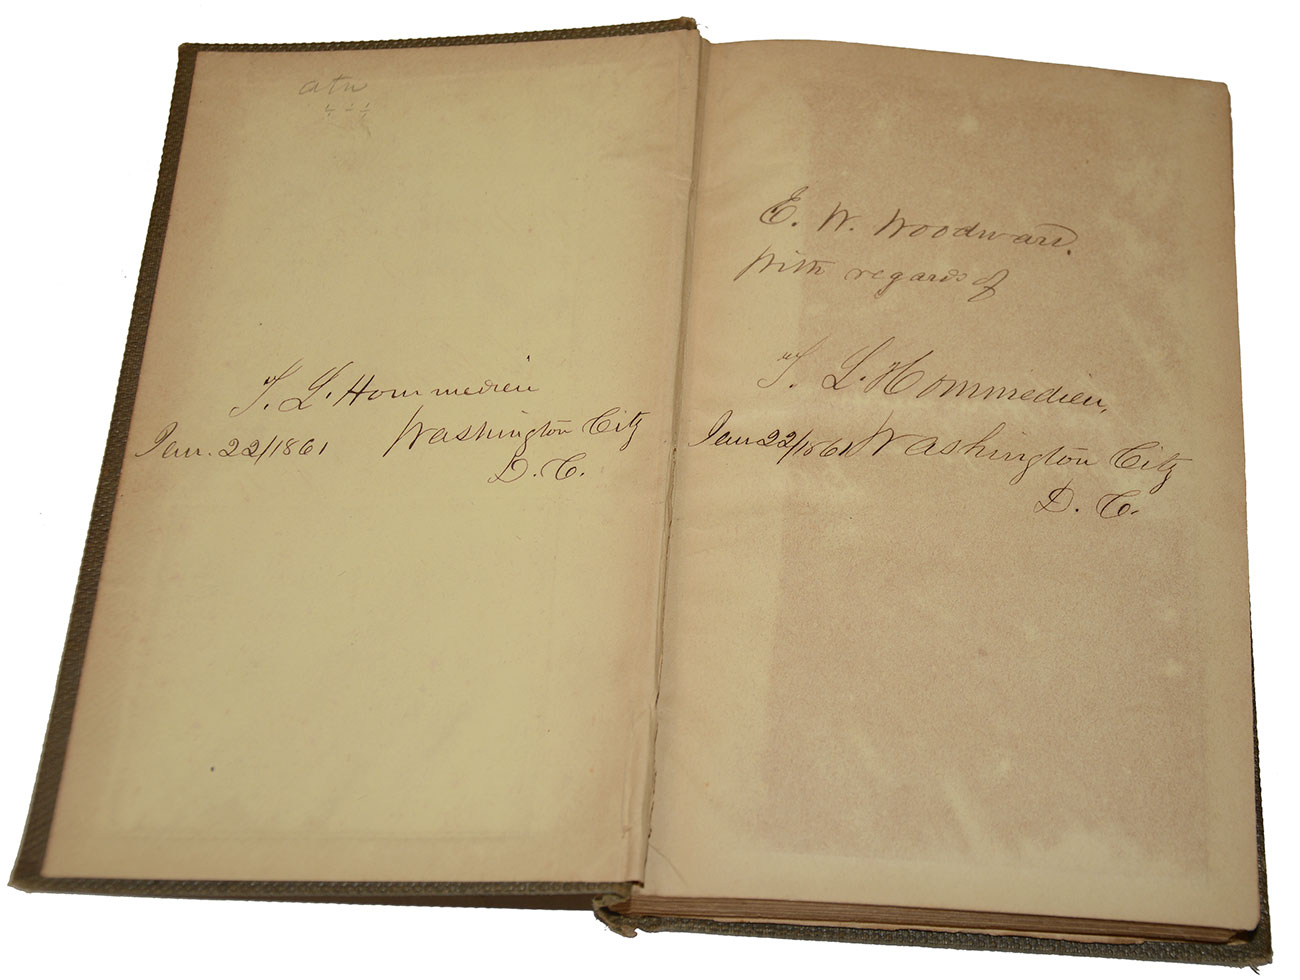 atn
T. L'Hommedieu
Jan. 22/1861 Washington City
D. C.
E. W. Woodward.
With regards of
T. L'Hommedieu,
Jan 22/1861 Washington City
D. C.